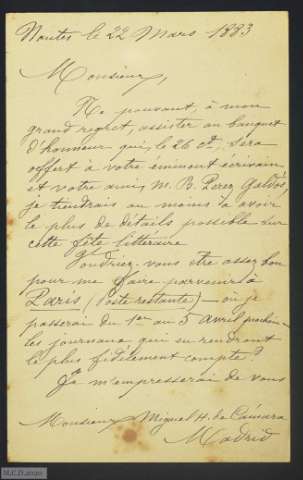 Nantes le 22 Mars 1883
Monsieur,
Ne pouvant, à mon
grand regret, assister au banquet
d'honneur qui, le 26 ct, sera
offert à votre éminent écrivain
et votre ami, M. B. Perez Galdós,
je tiendrais au moins à avoir
le plus de détails possible sur
cette fête littéraire.
Voudriez-vous être assez bon
pour me faire parvenir à
Paris (Poste restante) – où je
passerai du 1er au 5 avril prochain –
les journaux qui en rendront
le plus fidèlement compte?
Je m'empresserai de vous
Monsieur Miguel H. de Cámara
Madrid
M.C.D. 2020